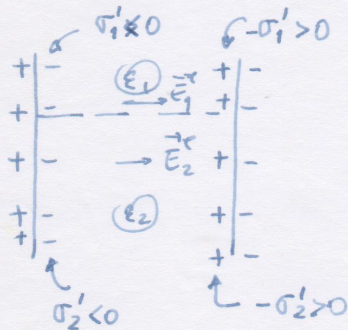 σ₁' < 0
-σ₁' > 0
+ - ε₁ + -
+ - E₁ʳ + -
+ - E₂ʳ + -
+ - ε₂ + -
+ - + -
σ₂' < 0
-σ₂' > 0